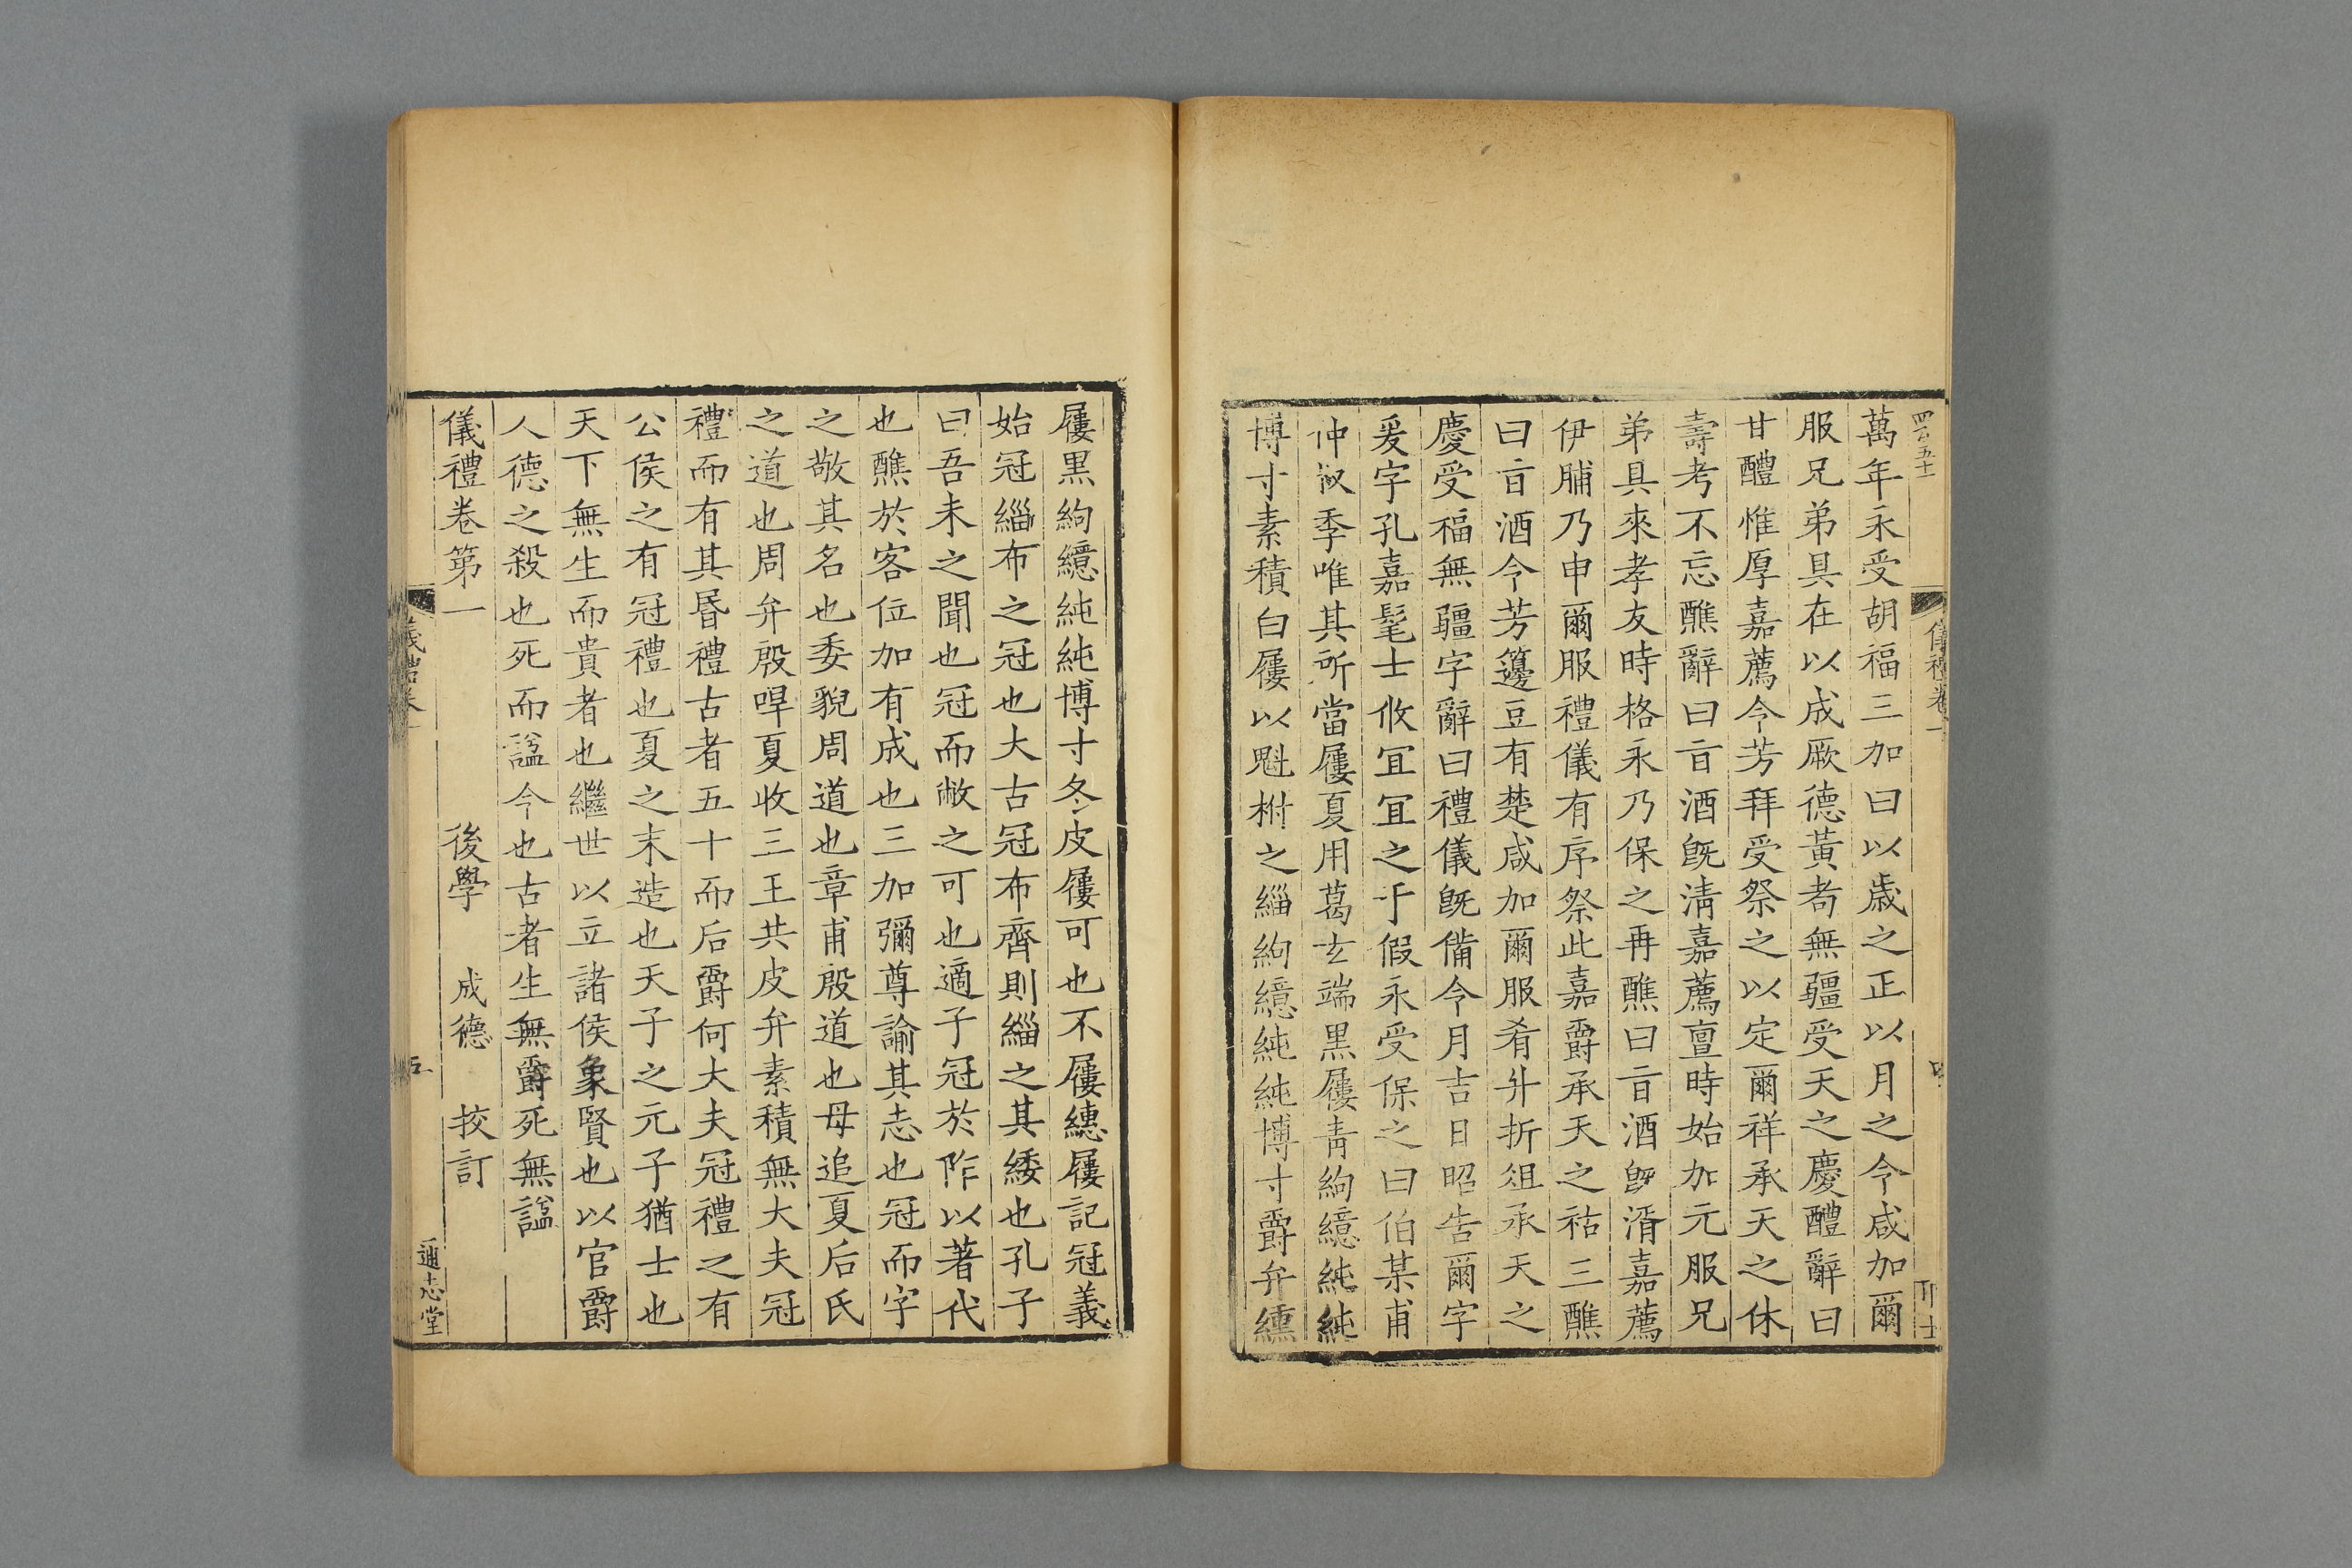 萬年永受胡福三加曰以歳之正以月之令咸加爾
服兄弟具在以成厥德黃耇無疆受天之慶醴辭曰
甘醴惟厚嘉薦令芳拜受祭之以定爾祥承天之休
壽考不忘醮辭曰旨酒旣淸嘉薦亶時始加元服兄
弟具來孝友時格永乃保之再醮曰旨酒旣湑嘉薦
伊脯乃申爾服禮儀有序祭此嘉爵承天之祜三醮
曰旨酒令芳籩豆有楚咸加爾服肴升折俎承天之
慶受福無疆字辭曰禮儀旣備令月吉日昭告爾字
爰字孔嘉髦士攸宜宜之于假永受保之曰伯某甫
仲叔季唯其所當屨夏用葛玄端黒屨靑絇繶純純
博寸素積白屨以魁柎之緇絇繶純純博寸爵弁纁
儀禮卷一
屨黒絇繶純純博寸冬皮屨可也不屨繐屨記冠義
始冠緇布之冠也大古冠布齊則緇之其緌也孔子
曰吾未之聞也冠而敝之可也適子冠於阼以著代
也醮於客位加有成也三加彌尊諭其志也冠而字
之敬其名也委貌周道也章甫殷道也毋追夏后氏
之道也周弁殷哻夏收三王共皮弁素積無大夫冠
禮而有其昏禮古者五十而后爵何大夫冠禮之有
公侯之有冠禮也夏之末造也天子之元子猶士也
天下無生而貴者也繼世以立諸侯象賢也以官爵
人德之殺也死而諡今也古者生無爵死無諡
儀禮卷第一 後學 成德 挍訂
通志堂